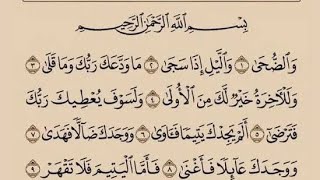 بِسْمِ ٱللَّهِ ٱلرَّحْمَٰنِ ٱلرَّحِيمِ
وَٱلضُّحَىٰ ١ وَٱلَّيْلِ إِذَا سَجَىٰ ٢ مَا وَدَّعَكَ رَبُّكَ وَمَا قَلَىٰ ٣
وَلَلْءَاخِرَةُ خَيْرٌ لَّكَ مِنَ ٱلْأُولَىٰ ٤ وَلَسَوْفَ يُعْطِيكَ رَبُّكَ
فَتَرْضَىٰٓ ٥ أَلَمْ يَجِدْكَ يَتِيمًا فَـَٔاوَىٰ ٦ وَوَجَدَكَ ضَآلًّا فَهَدَىٰ ٧
وَوَجَدَكَ عَآئِلًا فَأَغْنَىٰ ٨ فَأَمَّا ٱلْيَتِيمَ فَلَا تَقْهَرْ ٩